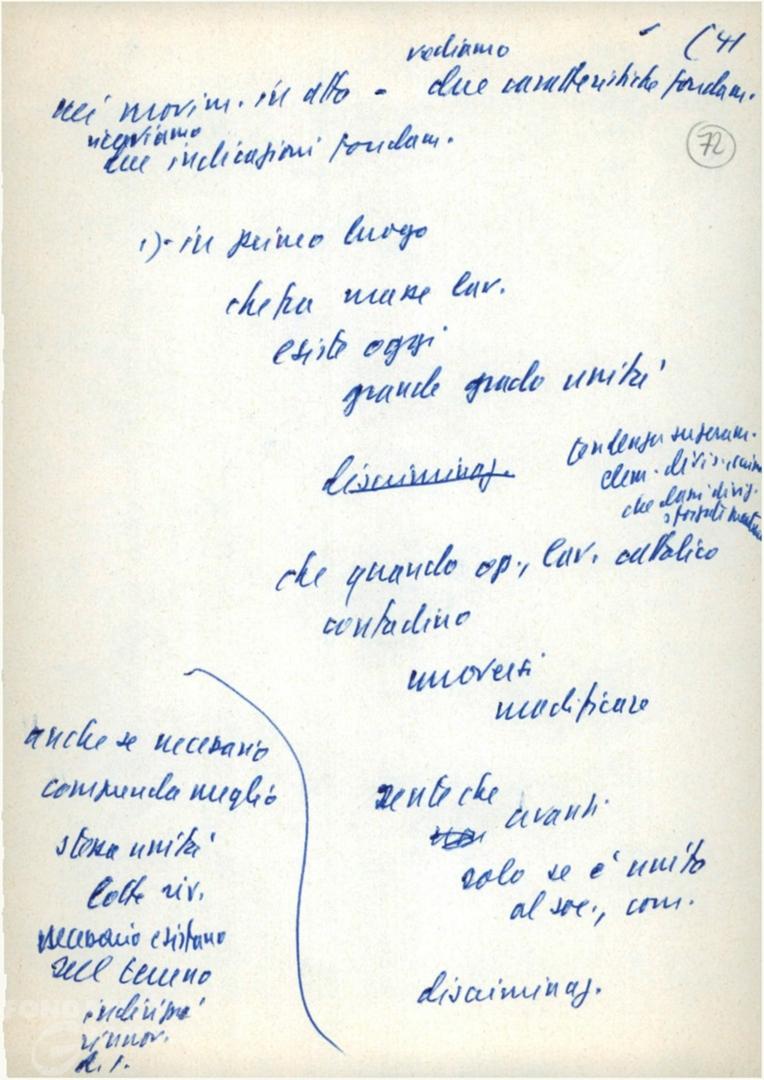 (41
vediamo
nei movim. in atto - due caratteristiche fondam.
72
ricaviamo
due indicazioni fondam.
1)- in primo luogo
che fra masse lav.
esiste oggi
grande grado unità
discriminaz.
tendenza superam.
elem. divis.
che quando op., lav. cattolico
contadino
muoversi
modificare
anche se necessario
comprenda meglio
stessa unità
lotte riv.
necessario esistano
nel terreno
rinnov.
sente che
avanti
solo se è unito
al soc., com.
discriminaz.